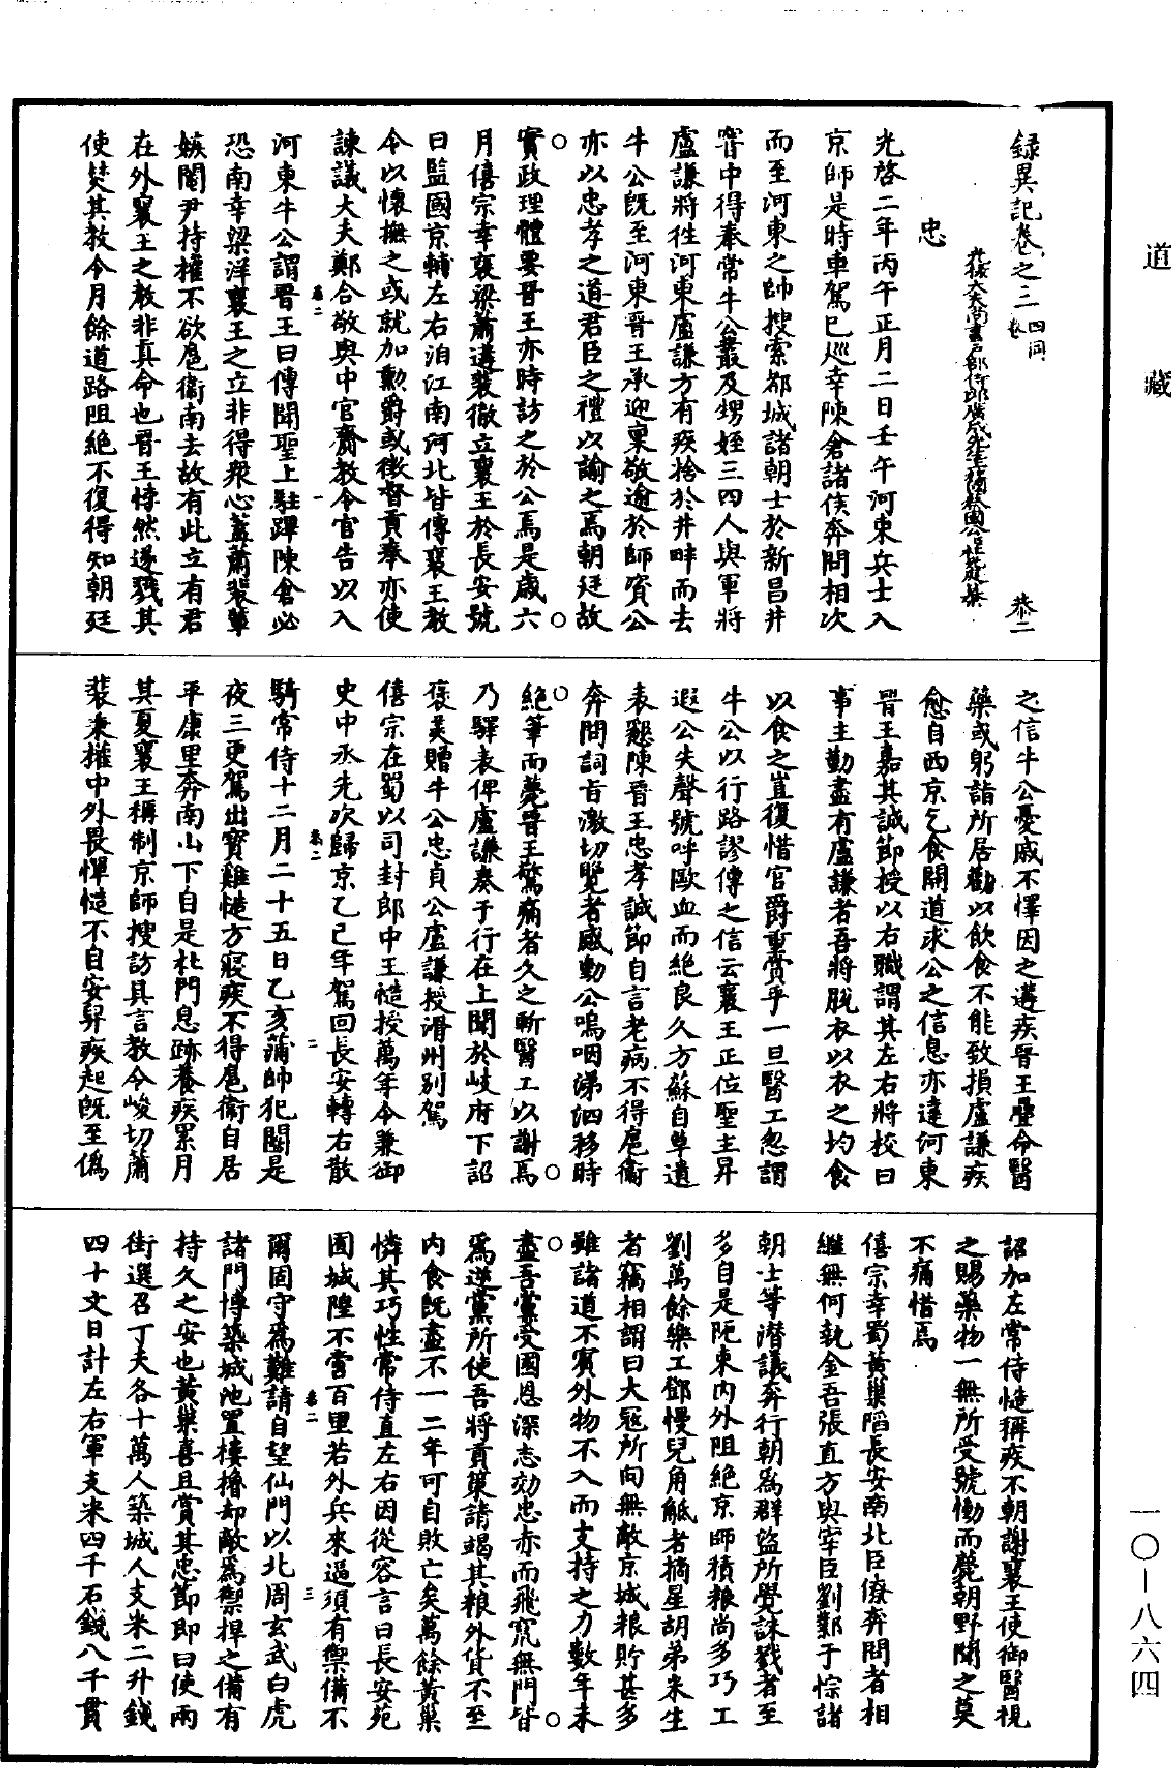 道藏
錄異記卷之三 四同卷 恭二
光祿大夫尚書戶部侍郎廣成先生蔡國公臣杜光庭纂
忠
光啓二年丙午正月二日壬午河東兵士入
京師是時車駕已巡幸陳倉諸侯奔問相次
而至河東之師搜索都城諸朝士於新昌井
窨中得奉常牛公叢及甥姪三四人與軍將
盧謙將往河東盧謙方有疾捨於井畔而去
牛公既至河東晉王承迎稟敬逾於師資公
亦以忠孝之道君臣之禮以諭之焉朝廷故
實政理體要晉王亦時訪之於公焉是歲六
月僖宗幸襃梁蕭遘裴徹立襄王於長安號
曰監國京輔左右洎江南河北皆傳襄王教
令以懷撫之或就加勳爵或徵督貢奉亦使
諫議大夫鄭合敬與中官齎教令官告以入
河東牛公謂晉王曰傳聞聖上駐蹕陳倉必
恐南幸梁洋襄王之立非得衆心蓋蕭裴輩
嫉閹尹持權不欲扈衛南去故有此立有君
在外襄王之教非真命也晉王悖然遂戮其
使焚其教令月餘道路阻絕不復得知朝廷
之信牛公憂戚不懌因之遘疾晉王疊命醫
藥或躬詣所居勸以飲食不能致損盧謙疾
愈自西京乞食間道求公之信息亦達河東
晉王嘉其誠節授以右職謂其左右將校曰
事主勤盡有盧謙者吾將脫衣以衣之均食
以食之豈復惜官爵重賞乎一旦醫工忽謂
牛公以行路謬傳之信云襄王正位聖主昇
遐公失聲號呼歐血而絕良久方蘇自草遺
表懇陳晉王忠孝誠節自言老病不得扈衛
奔問詞旨激切覽者感動公嗚咽涕泗移時
絕筆而薨晉王驚痛者久之斬醫工以謝焉
乃驛表俾盧謙奏于行在上聞於岐府下詔
褒美贈牛公忠貞公盧謙授滑州別駕
僖宗在蜀以司封郎中王慥授萬年令兼御
史中丞先次歸京乙巳年駕回長安轉右散
騎常侍十二月二十五日乙亥蒲帥犯闕是
夜三更駕出寶雞慥方寢疾不得扈衛自居
平康里奔南山下自是杜門息跡養疾累月
其夏襄王稱制京師搜訪具言教令峻切蕭
裴秉權中外畏憚慥不自安舁疾起既至僞
詔加左常侍慥稱疾不朝謝襄王使御醫視
之賜藥物一無所受號慟而薨朝野聞之莫
不痛惜焉
僖宗幸蜀黃巢陷長安南北臣僚奔問者相
繼無何執金吾張直方與宰臣劉鄴于悰諸
朝士等潛議奔行朝爲群盜所覺誅戮者至
多自是阨束內外阻絕京師積粮尚多巧工
劉萬餘樂工鄧慢兒角觝者摘星胡弟米生
者竊相謂曰大寇所向無敵京城粮貯甚多
雖諸道不賓外物不入而支持之力數年未
盡吾黨受國恩深志效忠赤而飛竄無門皆
爲逆黨所使吾將貢策請竭其粮外貨不至
內食既盡不一二年可自敗亡矣萬餘黃巢
憐其巧性常侍直左右因從容言曰長安苑
囿城隍不啻百里若外兵來逼須有禦備不
爾固守爲難請自望仙門以北周玄武白虎
諸門博築城池置樓櫓却敵爲禦捍之備有
持久之安也黃巢喜且賞其忠節即日使兩
街選召丁夫各十萬人築城人支米二升錢
四十文日計左右軍支米四千石錢八千貫
恭二 一
恭二 二
恭二 三
一〇—八六四